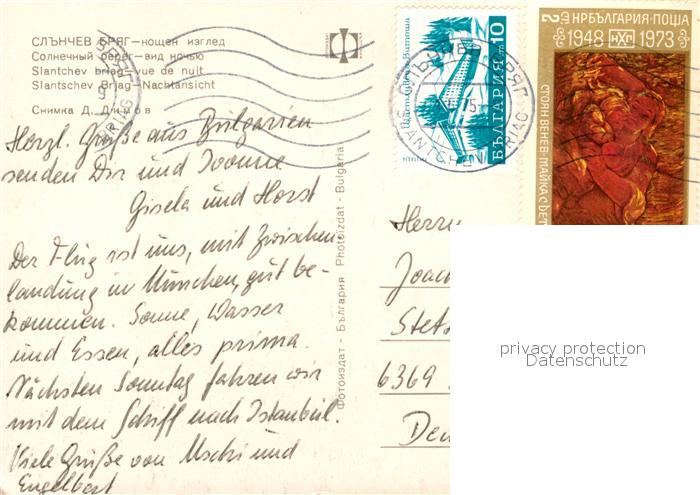 СЛЪНЧЕВ БРЯГ—нощен изглед
Солнечный берег—вид ночью
Slantchev briag—vue de nuit
Slantschev Briag—Nachtansicht
Снимка Д.
Herzl. Grüße aus Bulgarien
senden Dir und Ivonne
Gisela und Horst
Der Flug ist uns, mit Zwischen-
landung in München, gut be-
kommen. Sonne, Wasser
und Essen, alles prima.
Nächsten Sonntag fahren wir
mit dem Schiff nach Istanbul.
Viele Grüße von Uschi und
Engelbert
Фотоиздат - България Photoizdat - Bulgaria
БЪЛГАРИЯ пощa 10
СЛЪНЧЕВ БРЯГ
SLANTCHEV BRIAG
2 СТ НР БЪЛГАРИЯ·ПОЩА
1948 НХГ 1973
СТОЯН ВЕНЕВ·МАЙКА С ДЕТЕ
Herrn
Joac
Stets
6369
Deu
privacy protection
Datenschutz